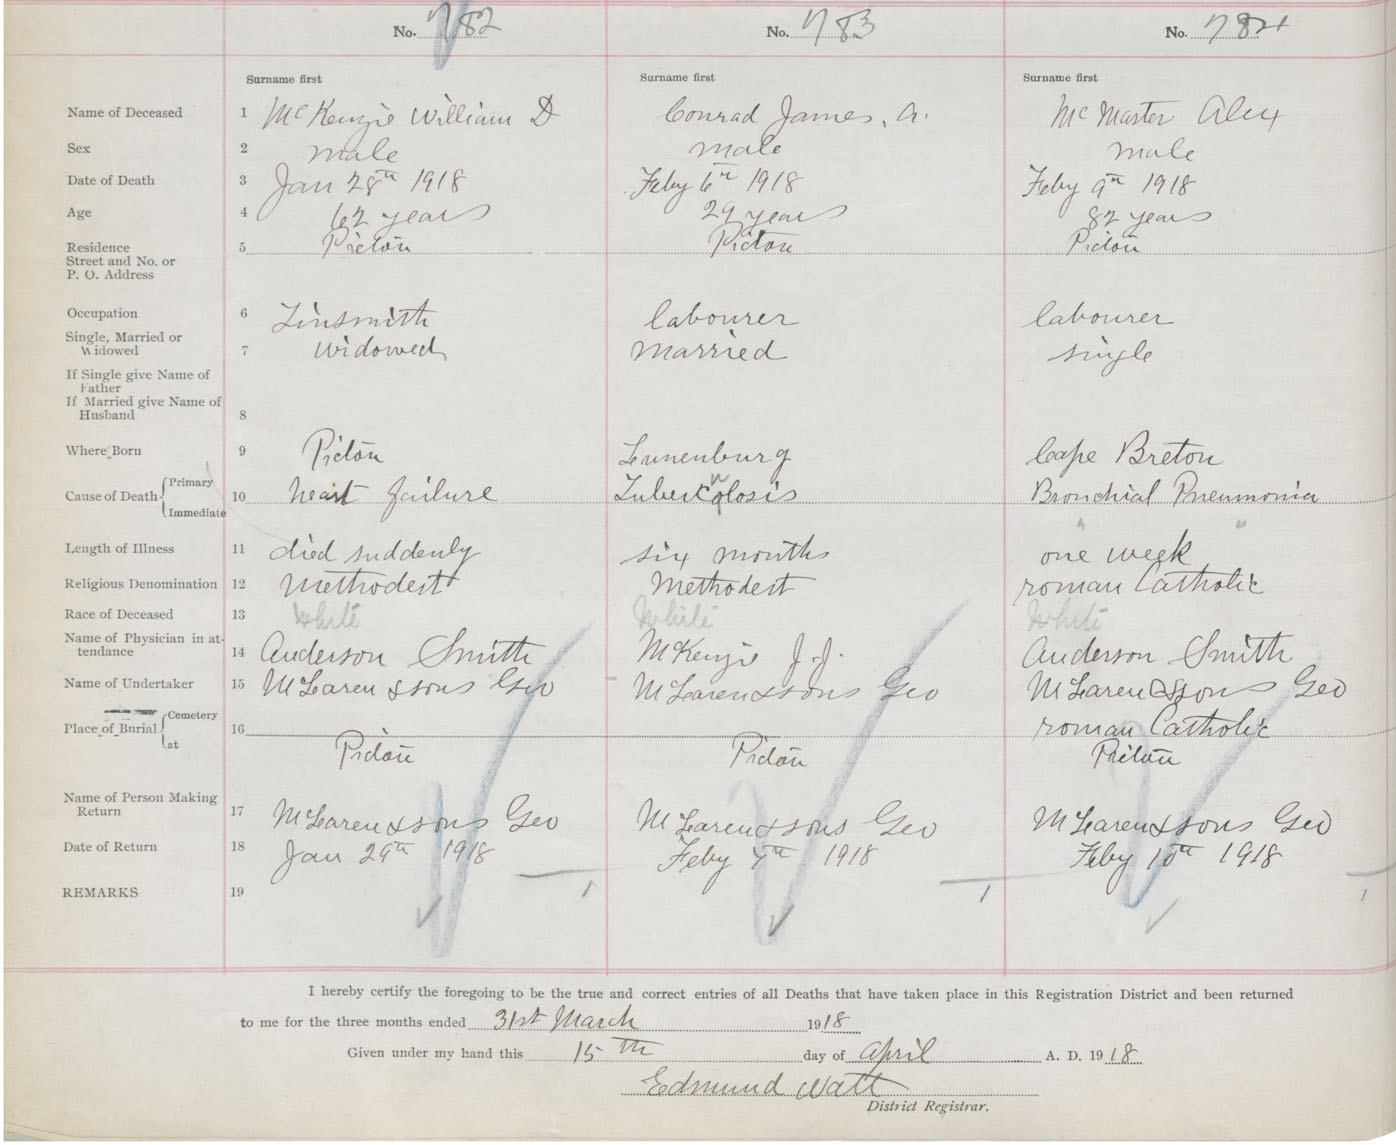 No. 782 No. 783 No. 784
Surname first Surname first Surname first
Name of Deceased 1 McKenzie William D Conrad James. A. McMaster Alex
Sex 2 male male male
Date of Death 3 Jan 28th 1918 Feby 6th 1918 Feby 9th 1918
Age 4 62 years 29 years 82 years
Residence 5 Pictou Pictou Pictou
Street and No. or
P. O. Address
Occupation 6 Tinsmith labourer labourer
Single, Married or
Widowed 7 widowed married single
If Single give Name of
Father
If Married give Name of
Husband 8
Where Born 9 Pictou Lunenburg Cape Breton
Primary
Cause of Death 10 heart failure Tuberculosis Bronchial Pneumonia
Immediate
" "
Length of Illness 11 died suddenly six months one week
Religious Denomination 12 Methodest Methodest roman Catholic
Race of Deceased 13 White White White
Name of Physician in at-
tendance 14 Anderson Smith McKenzie J.J. Anderson Smith
Name of Undertaker 15 McLaren & sons Geo McLaren & sons Geo McLaren & sons Geo
Cemetery
Place of Burial 16 roman Catholic
at Pictou Pictou Pictou
Name of Person Making
Return 17 McLaren & sons Geo McLaren & sons Geo McLaren & sons Geo
Date of Return 18 Jan 29th 1918 Feby 7th 1918 Feby 10th 1918
REMARKS 19
I hereby certify the foregoing to be the true and correct entries of all Deaths that have taken place in this Registration District and been returned
to me for the three months ended 31st March 1918
Given under my hand this 15th day of April A. D. 1918
Edmund Watt
District Registrar.